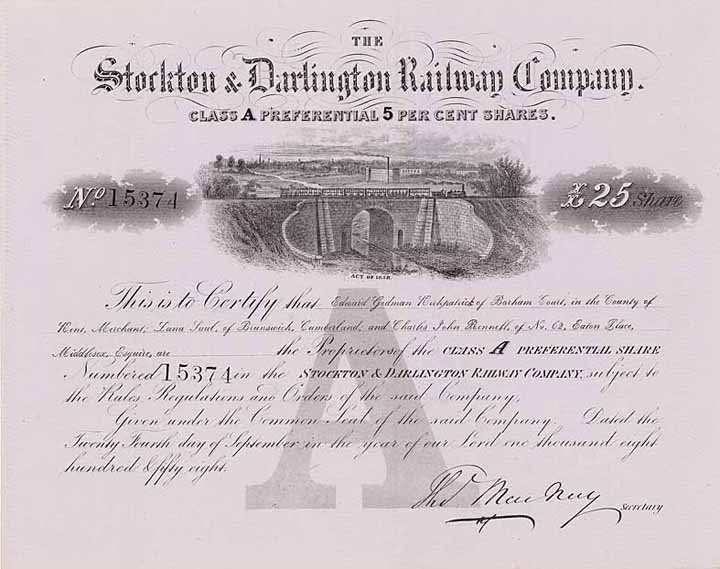 THE
Stockton & Darlington Railway Company.
CLASS A PREFERENTIAL 5 PER CENT SHARES.
No 15374 £25 Share
ACT OF 1858
This is to Certify that Edward Godman Kirkpatrick of Barham Court, in the County of
Kent, Merchant, of Brunswick, Cumberland, and Charles John of No. 62, Eaton Place,
Middlesex, Esquire, are the Proprietors of the CLASS A PREFERENTIAL SHARE
Numbered 15374 in the STOCKTON & DARLINGTON RAILWAY COMPANY, subject to
the Rules Regulations and Orders of the said Company,
Given under the Common Seal of the said Company. Dated the
Twenty Fourth day of September in the year of our Lord one thousand eight
hundred & fifty eight.
Thos. MacNay
Secretary
A